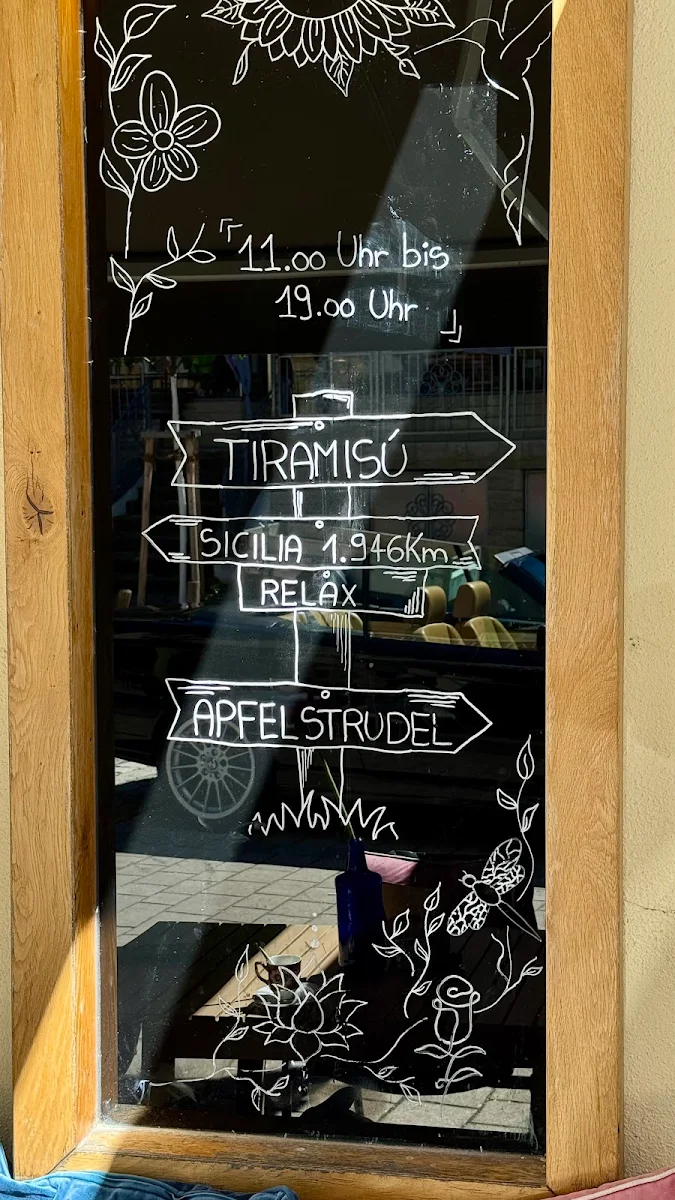 11.00 Uhr bis
19.00 Uhr
TIRAMISÚ
SICILIA 1.946Km
RELAX
APFELSTRUDEL